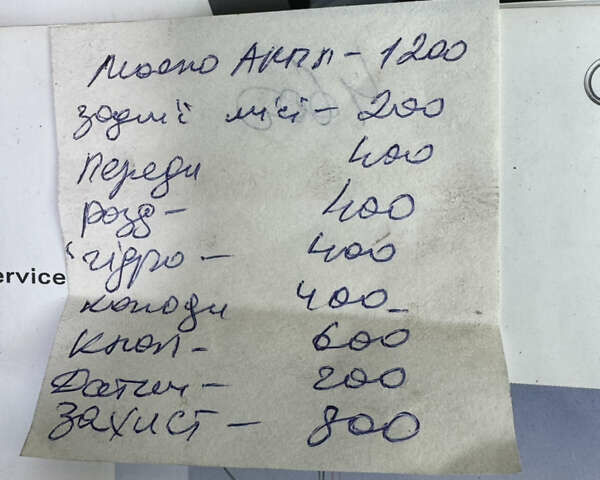 Масло АКПП - 1200
задній міст - 200
Переди 400
розд - 400
гідро - 400
колоди 400
кноп - 600
Датчи - 200
Захист - 800
ervice